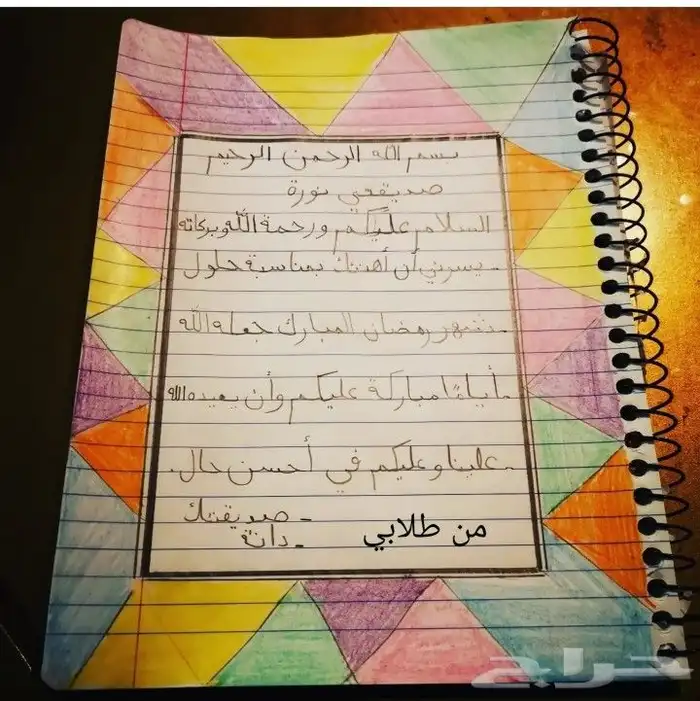 بسم الله الرحمن الرحيم
صديقتي نورة
السلام عليكم ورحمة الله وبركاته
- يسرني أن أهنئك بمناسبة حلول
- شهر رمضان المبارك جعله الله
- أيامًا مباركة عليكم وأن يعيده الله
- علينا وعليكم في أحسن حال.
- صديقتك
- دانة
من طلابي
حراج